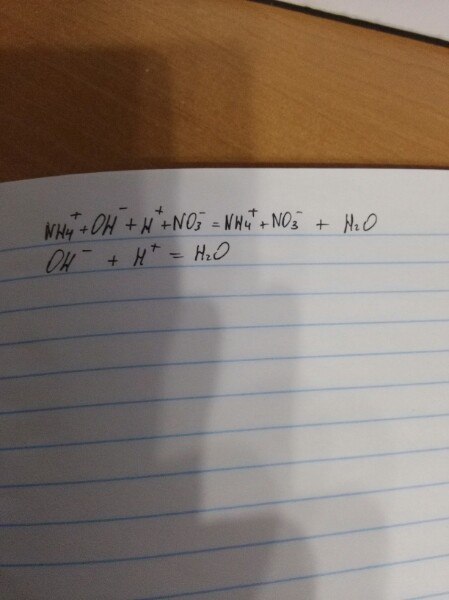 NH₄⁺+OH⁻+H⁺+NO₃⁻=NH₄⁺+NO₃⁻ + H₂O
OH⁻ + H⁺ = H₂O